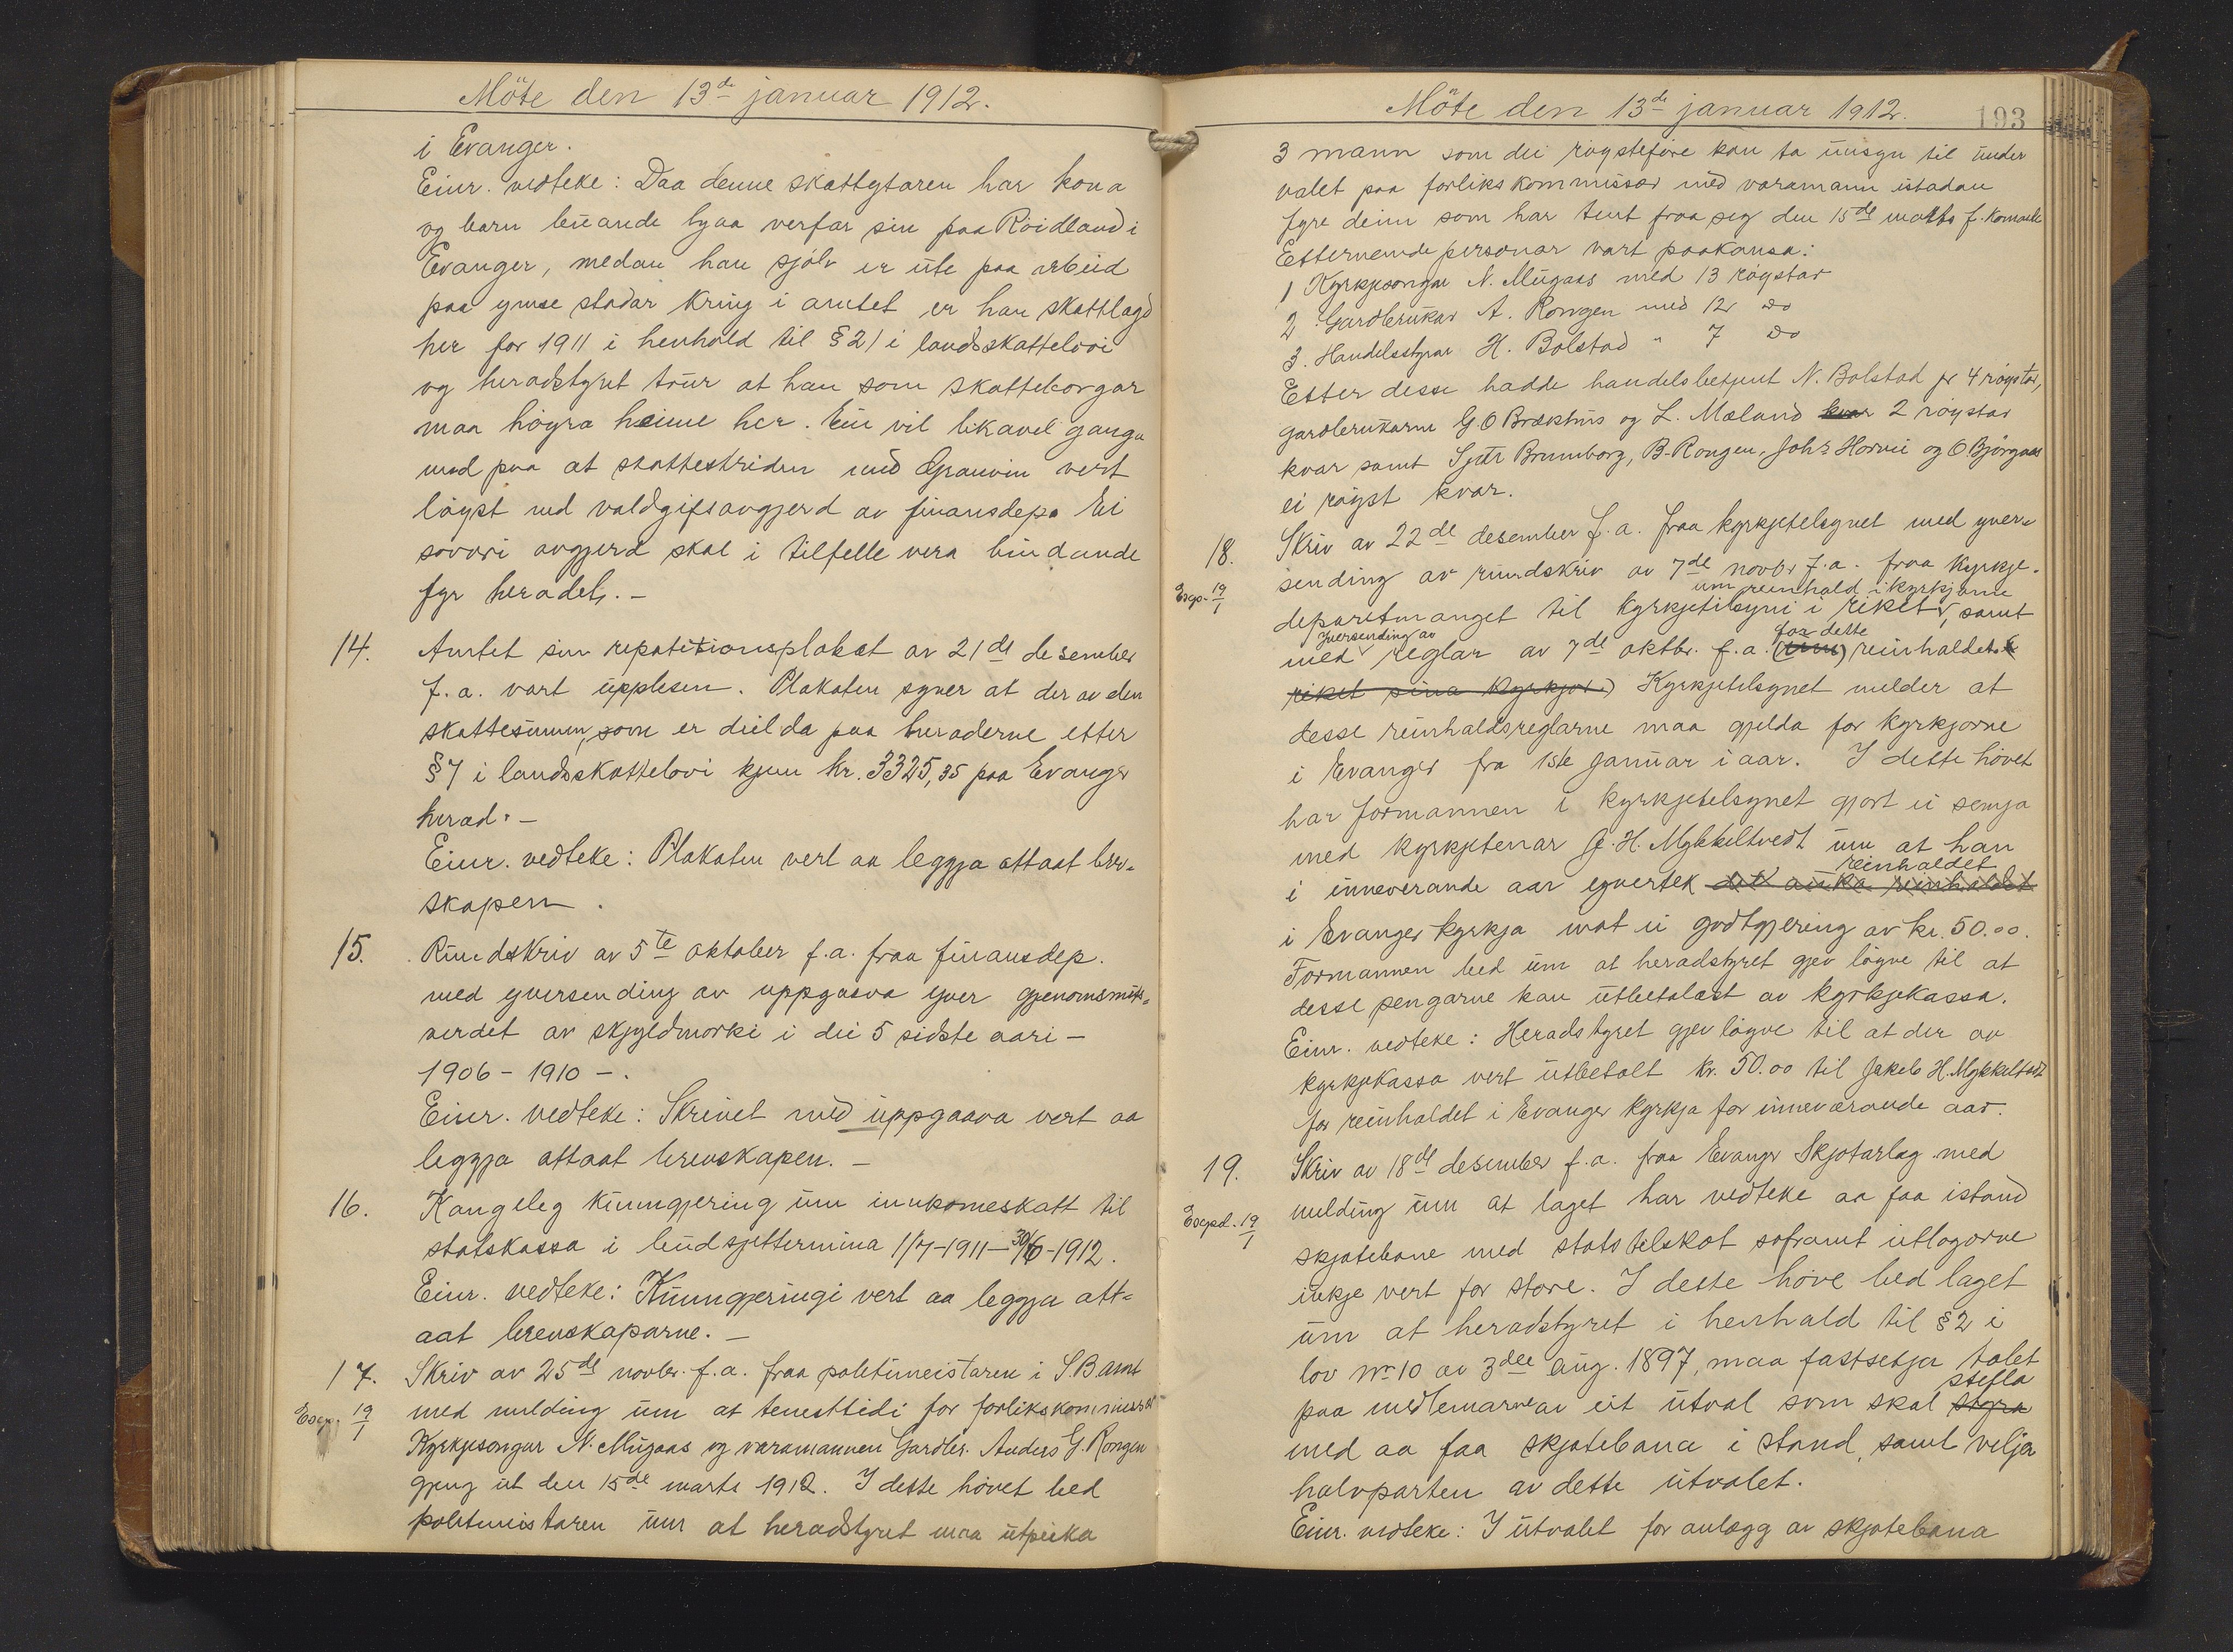 Möte den 13de januar 1912.
i Evanger.
Einr. vedteke: Daa denne skattytaren har kona
og barn buande hjaa verfar sin paa Röidland i
Evanger, medan han sjölv er ute paa arbeid
paa ymse stadar kring i amtet er han skattlagd
her for 1911 i henhold til § 21 i landsskattelovi
og heradstyret trur at han som skatteborgar
maa högra heime her. Ein vil likavel ganga
med paa at skattestriden med Granvin vert
löyst ved valdgiftsavgjerd av finansdep. Ei
sovori avgjerd skal i tilfelle vera bindande
fyr heradet. –
14. Amtet sin repatitionsplakat av 21de desember
f.a. vart upplesen. Plakaten syner at der av den
skattesumm, som er deilda paa heraderne etter
§ 7 i landsskattelovi kjem kr. 3325,35 paa Evanger
herad. –
Einr. vedteke: Plakaten vert aa leggja attaat brev-
skapen.
15. Rundskriv av 5te oktober f.a. fraa finansdep.
med yversending av uppgaava yver gjenomsnits-
verdet av skyldmorki i dei 5 sidste aari –
1906 – 1910 –.
Einr. vedteke: Skrivet med uppgaava vert aa
leggja attaat brevskapen. –
16. Kongeleg kunngjering um innkomeskatt til
statskassa i budsjettermina 1/7-1911 – 30/6-1912.
Einr. vedteke: Kunngjeringi vert aa leggja att-
aat brevskaparne. –
17. Skriv av 25de novbr. f.a. fraa politimeistaren i S. B. amt
Exp. 19/1 med melding um at tenesttidi for forlikskommissær
Kyrkjesongar N. Mugaas og varamannen Gardbr. Anders G. Rongen
gjeng ut den 15de marts 1912. I dette hövet bed
politimeistaren um at heradstyret maa utpeika
Möte den 13de januar 1912. 193
3 mann som dei röysteföre kan ta umsyn til under
valet paa forlikskommissær med varamann istadan
fyre deim som har tent fraa seg den 15de marts f. komande
Etternemde personar vart paakansa:
1 Kyrkjesongar N. Mugaas med 13 röystar
2 Gardbrukar A. Rongen med 12 do
3. Handelsstyrar H. Bolstad " 7 do
Etter desse hadde handelsbetjent N. Bolstad fr 4 röystar,
gardbrukarne G. O Brækhus og L. Mæland kvar 2 röystar
kvar samt Sjur Brunborg, B. Rongen, Johs Horvei og O. Bjørgaas
ei röyst kvar.
18. Skriv av 22de desember f.a. fraa kyrkjetilsynet med yver-
Exp. 19/1 sending av rundskriv av 7de novbr f.a. fraa Kyrkje-
um reinhald i kyrkjorne
departemanget til kyrkjetilsyni i riket, samt
yversending av
for dette
med reglar av 7de oktbr. f.a. (um) reinhaldet i
riket sina kyrkjor.) Kyrkjetilsynet melder at
desse reinhaldsreglarne maa gjelda for kyrkjorne
i Evanger fra 1ste januar i aar. I dette hövet
har formannen i kyrkjetilsynet gjort ei semja
med kyrkjetenar J. H. Mykkeltvedt um at han
reinhaldet
i inneverande aar yvertek det auka reinhaldet
i Evanger kyrkja mot ei godtgjering av kr. 50.00.
Formannen bed um at heradstyret gjev löyve til at
desse pengarne kan utbetalast av kyrkjekassa.
Einr. vedteke: Heradstyret gjev löyve til at der av
kyrkjekassa vert utbetalt kr. 50.00 til Jakob H. Mykkeltvedt
for reinhaldet i Evanger kyrkja for inneværande aar.
19. Skriv av 18de desember f.a. fraa Evanger Skjotarlag med
Exped. 19/1 melding um at laget har vedteke aa faa istand
skjotebane med statstilskot soframt utlogorne
inkje vert for store. I dette höve bed laget
um at heradstyret i henhald til § 2 i
lov No 10 av 3dee aug. 1897, maa fastsetja talet
stella
paa medlemarne av eit utval som skal styra
med aa faa skjotebana i stand, samt velja
halvparten av dette utvalet.
Einr. vedteke: I utvalet for anlegg av skjotebana